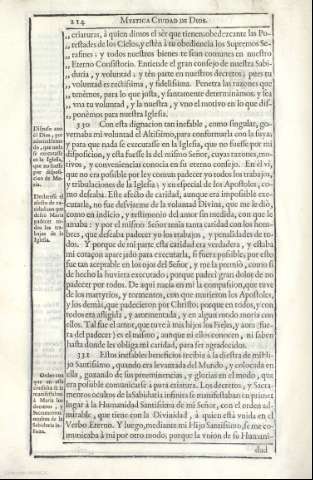 214 MYSTICA CIUDAD DE DIOS.
,, criaturas, à quien dimos el sèr que tienen obedezcante las Po-
,, testades de los Cielos, y estèn à tu obediencia los Supremos Se-
,, rafines: y todos nuestros bienes te sean comunes en nuestro
,, Eterno Consistorio. Entiende el gran consejo de nuestra Sabi-
,, duria, y voluntad; y tèn parte en nuestros decretos; pues tu
,, voluntad es rectissima, y fidelissima. Penetra las razones que
,, tenèmos, para lo que justa, y santamente determinamos; y sea
,, vna tu voluntad, y la nuestra, y vno el motivo en lo que dis-
,, ponèmos para nuestra Iglesia.
330 Con esta dignacion tan inefable, como singular, go-
vernaba mi voluntad el Altissimo, para conformarla con la suya;
y para que nada se executasse en la Iglesia, que no fuesse por mi
disposicion, y esta fuesse la del mismo Señor, cuyas razones, mo-
tivos, y conveniencias conocia en su eterno consejo. En èl vì,
que no era possible por ley comun padecer yo todos los trabajos,
y tribulaciones de la Iglesia; y en especial de los Apostoles, co-
mo deseaba. Este afecto de caridad, aunque era impossible exe-
cutarlo, no fue desviarme de la voluntad Divina, que me le diò,
como en indicio, y testimonio del amor sin medida, con que le
amaba: y por el mismo Señor tenia tanta caridad con los hom-
bres, que deseaba padecer yo los trabajos, y penalidades de to-
dos. Y porque de mi parte esta caridad era verdadera, y estaba
mi coraçon aparejado para executarla, si fuera possible; por esto
fue tan aceptable en los ojos del Señor, y me la premiò, como si
de hecho la huviera executado; porque padecì gran dolor de no
padecer por todos. De aqui nacia en mì la compassion, que tuve
de los martyrios, y tormentos, con que murieron los Apostoles,
y los demàs, que padecieron por Christo; porque en todos, y con
todos era afligida, y atormentada, y en algun modo moria con
ellos. Tal fue el amor, que tuve à mis hijos los Fieles, y aora (fue-
ra del padecer) es el mismo; aunque ni ellos conocen, ni saben
hasta donde les obliga mi caridad, para ser agradecidos.
331 Estos inefables beneficios recibìa à la diestra de mi Hi-
jo Santissimo, quando era levantada del Mundo, y colocada en
ella, gozando de sus preeminencias, y glorias en el modo, que
era possible comunicarse à pura criatura. Los decretos, y Sacra-
mentos ocultos de la Sabiduria infinita se manifestaban en primer
lugar à la Humanidad Santissima de mi Señor, con el orden ad-
mirable, que tiene con la Divinidad, à quien està vnida en el
Verbo Eterno. Y luego, mediante mi Hijo Santissimo, se me co-
municaba à mì por otro modo; porque la vnion de su Humani-
dad
Dispuso
el
Iglesia,
que no fuesse
por
de Ma-
ria.
afecto de ca-
ridad
Maria
padecer to-
dos los tra-
bajos de la
Iglesia.
Orden con
que en esta
à Maria los
decretos, y
Sacramentos
ocultos de
la Sabiduria in-
finita.